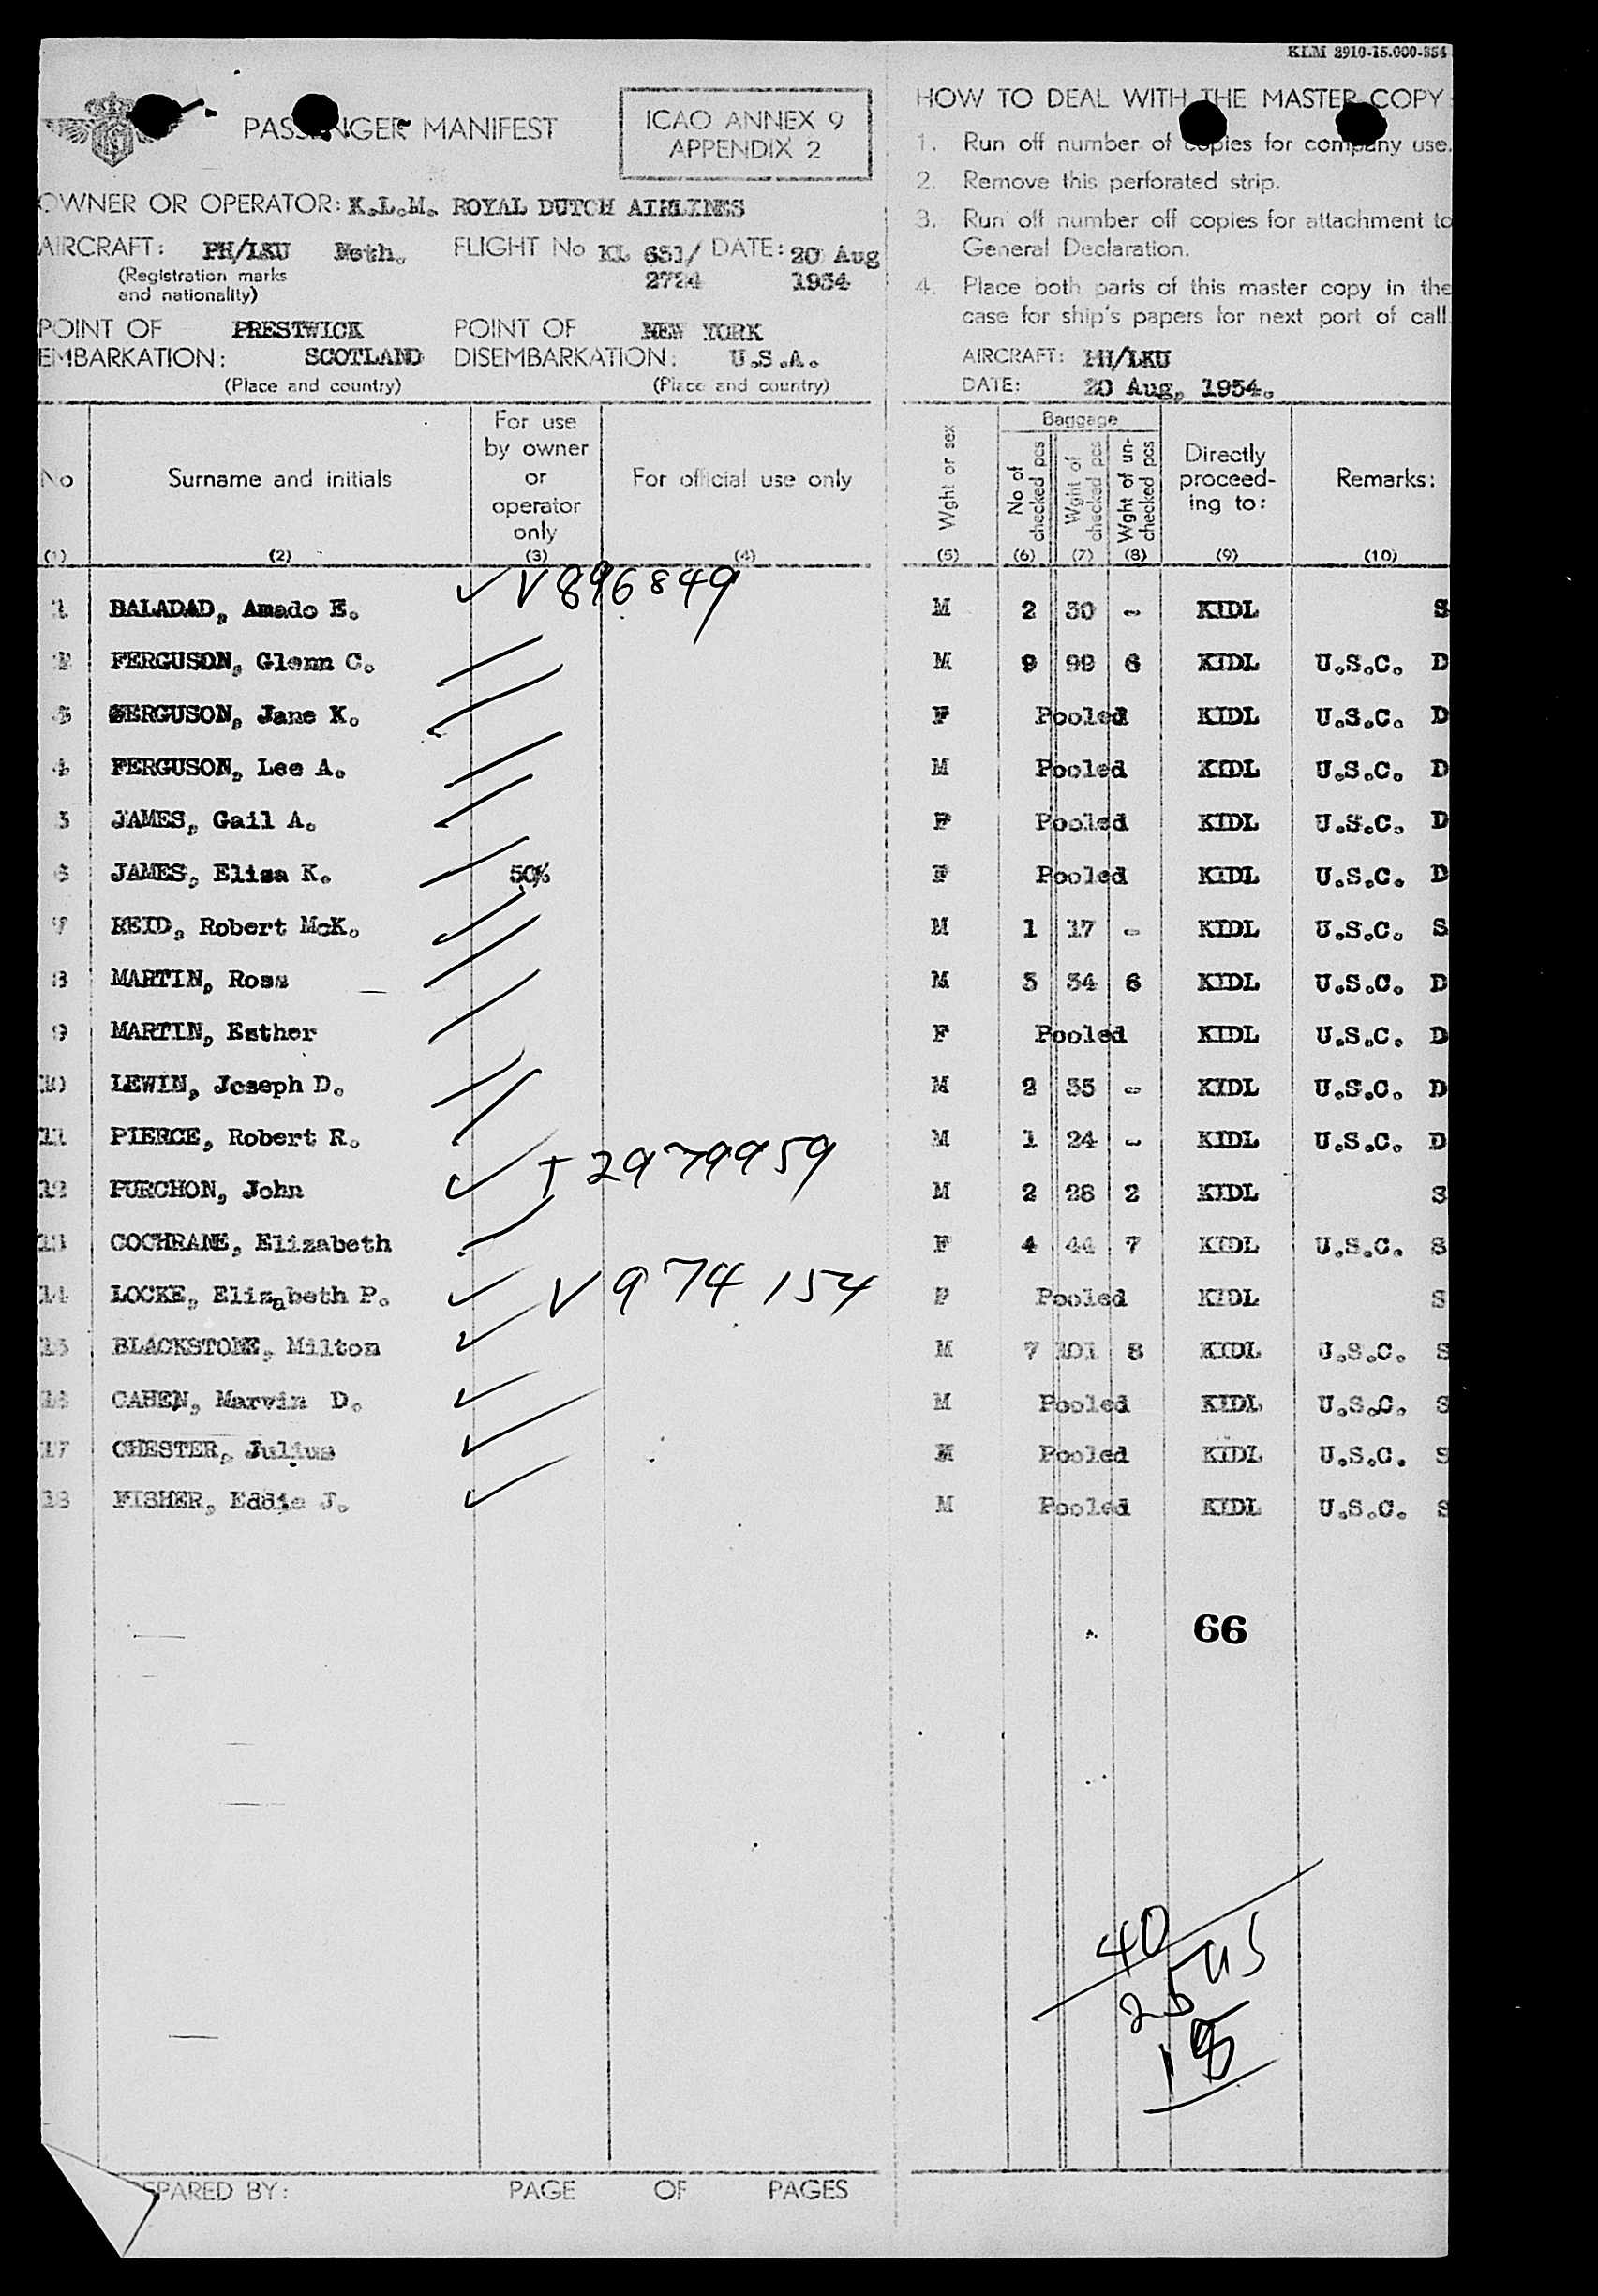 KLM 2910-15.000-354
PASSENGER MANIFEST
ICAO ANNEX 9
APPENDIX 2
OWNER OR OPERATOR: K.L.M. ROYAL DUTCH AIRLINES
AIRCRAFT: PH/LKU Neth. FLIGHT No KL 651/ DATE: 20 Aug
(Registration marks 2724 1954
and nationality)
POINT OF PRESTWICK POINT OF NEW YORK
EMBARKATION: SCOTLAND DISEMBARKATION: U.S.A.
(Place and country) (Place and country)
HOW TO DEAL WITH THE MASTER COPY:
1. Run off number of copies for company use.
2. Remove this perforated strip.
3. Run off number off copies for attachment to
General Declaration.
4. Place both parts of this master copy in the
case for ship's papers for next port of call
AIRCRAFT: PH/LKU
DATE: 20 Aug, 1954.
No Surname and initials For use by owner or operator only For official use only Wght or sex Baggage No of checked pcs Wght of checked pcs Wght of un-checked pcs Directly proceed-ing to: Remarks:
(1) (2) (3) (4) (5) (6) (7) (8) (9) (10)
1 BALADAD, Amado E. V896849 M 2 30 - KIDL S
2 FERGUSON, Glenn C. M 9 99 6 KIDL U.S.C. D
3 FERGUSON, Jane K. F Pooled KIDL U.S.C. D
4 FERGUSON, Lee A. M Pooled KIDL U.S.C. D
5 JAMES, Gail A. F Pooled KIDL U.S.C. D
6 JAMES, Elisa K. 50% F Pooled KIDL U.S.C. D
7 REID, Robert McK. M 1 17 - KIDL U.S.C. S
8 MARTIN, Ross M 3 34 6 KIDL U.S.C. D
9 MARTIN, Esther F Pooled KIDL U.S.C. D
10 LEWIN, Joseph D. M 2 35 - KIDL U.S.C. D
11 PIERCE, Robert R. M 1 24 - KIDL U.S.C. D
12 PURCHON, John T2979959 M 2 28 2 KIDL S
13 COCHRANE, Elizabeth F 4 44 7 KIDL U.S.C. S
14 LOCKE, Elizabeth P. V974154 F Pooled KIDL S
15 BLACKSTONE, Milton M 7 101 8 KIDL U.S.C. S
16 CAHEN, Marvin D. M Pooled KIDL U.S.C. S
17 CHESTER, Julius M Pooled KIDL U.S.C. S
18 FISHER, Eddie J. M Pooled KIDL U.S.C. S
66
40
25 US
15
PREPARED BY: PAGE OF PAGES